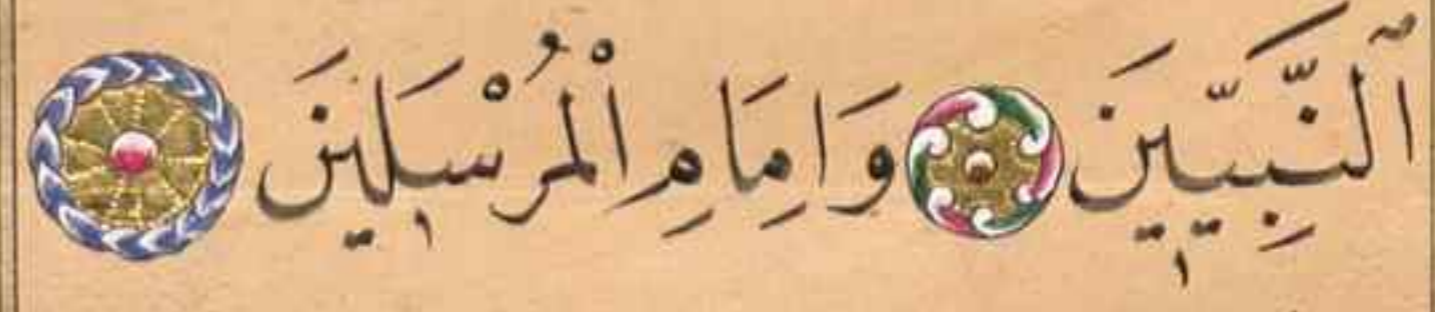 اَلنَّبِيّ۪ينَ وَاِمَامِ الْمُرْسَل۪ينَ